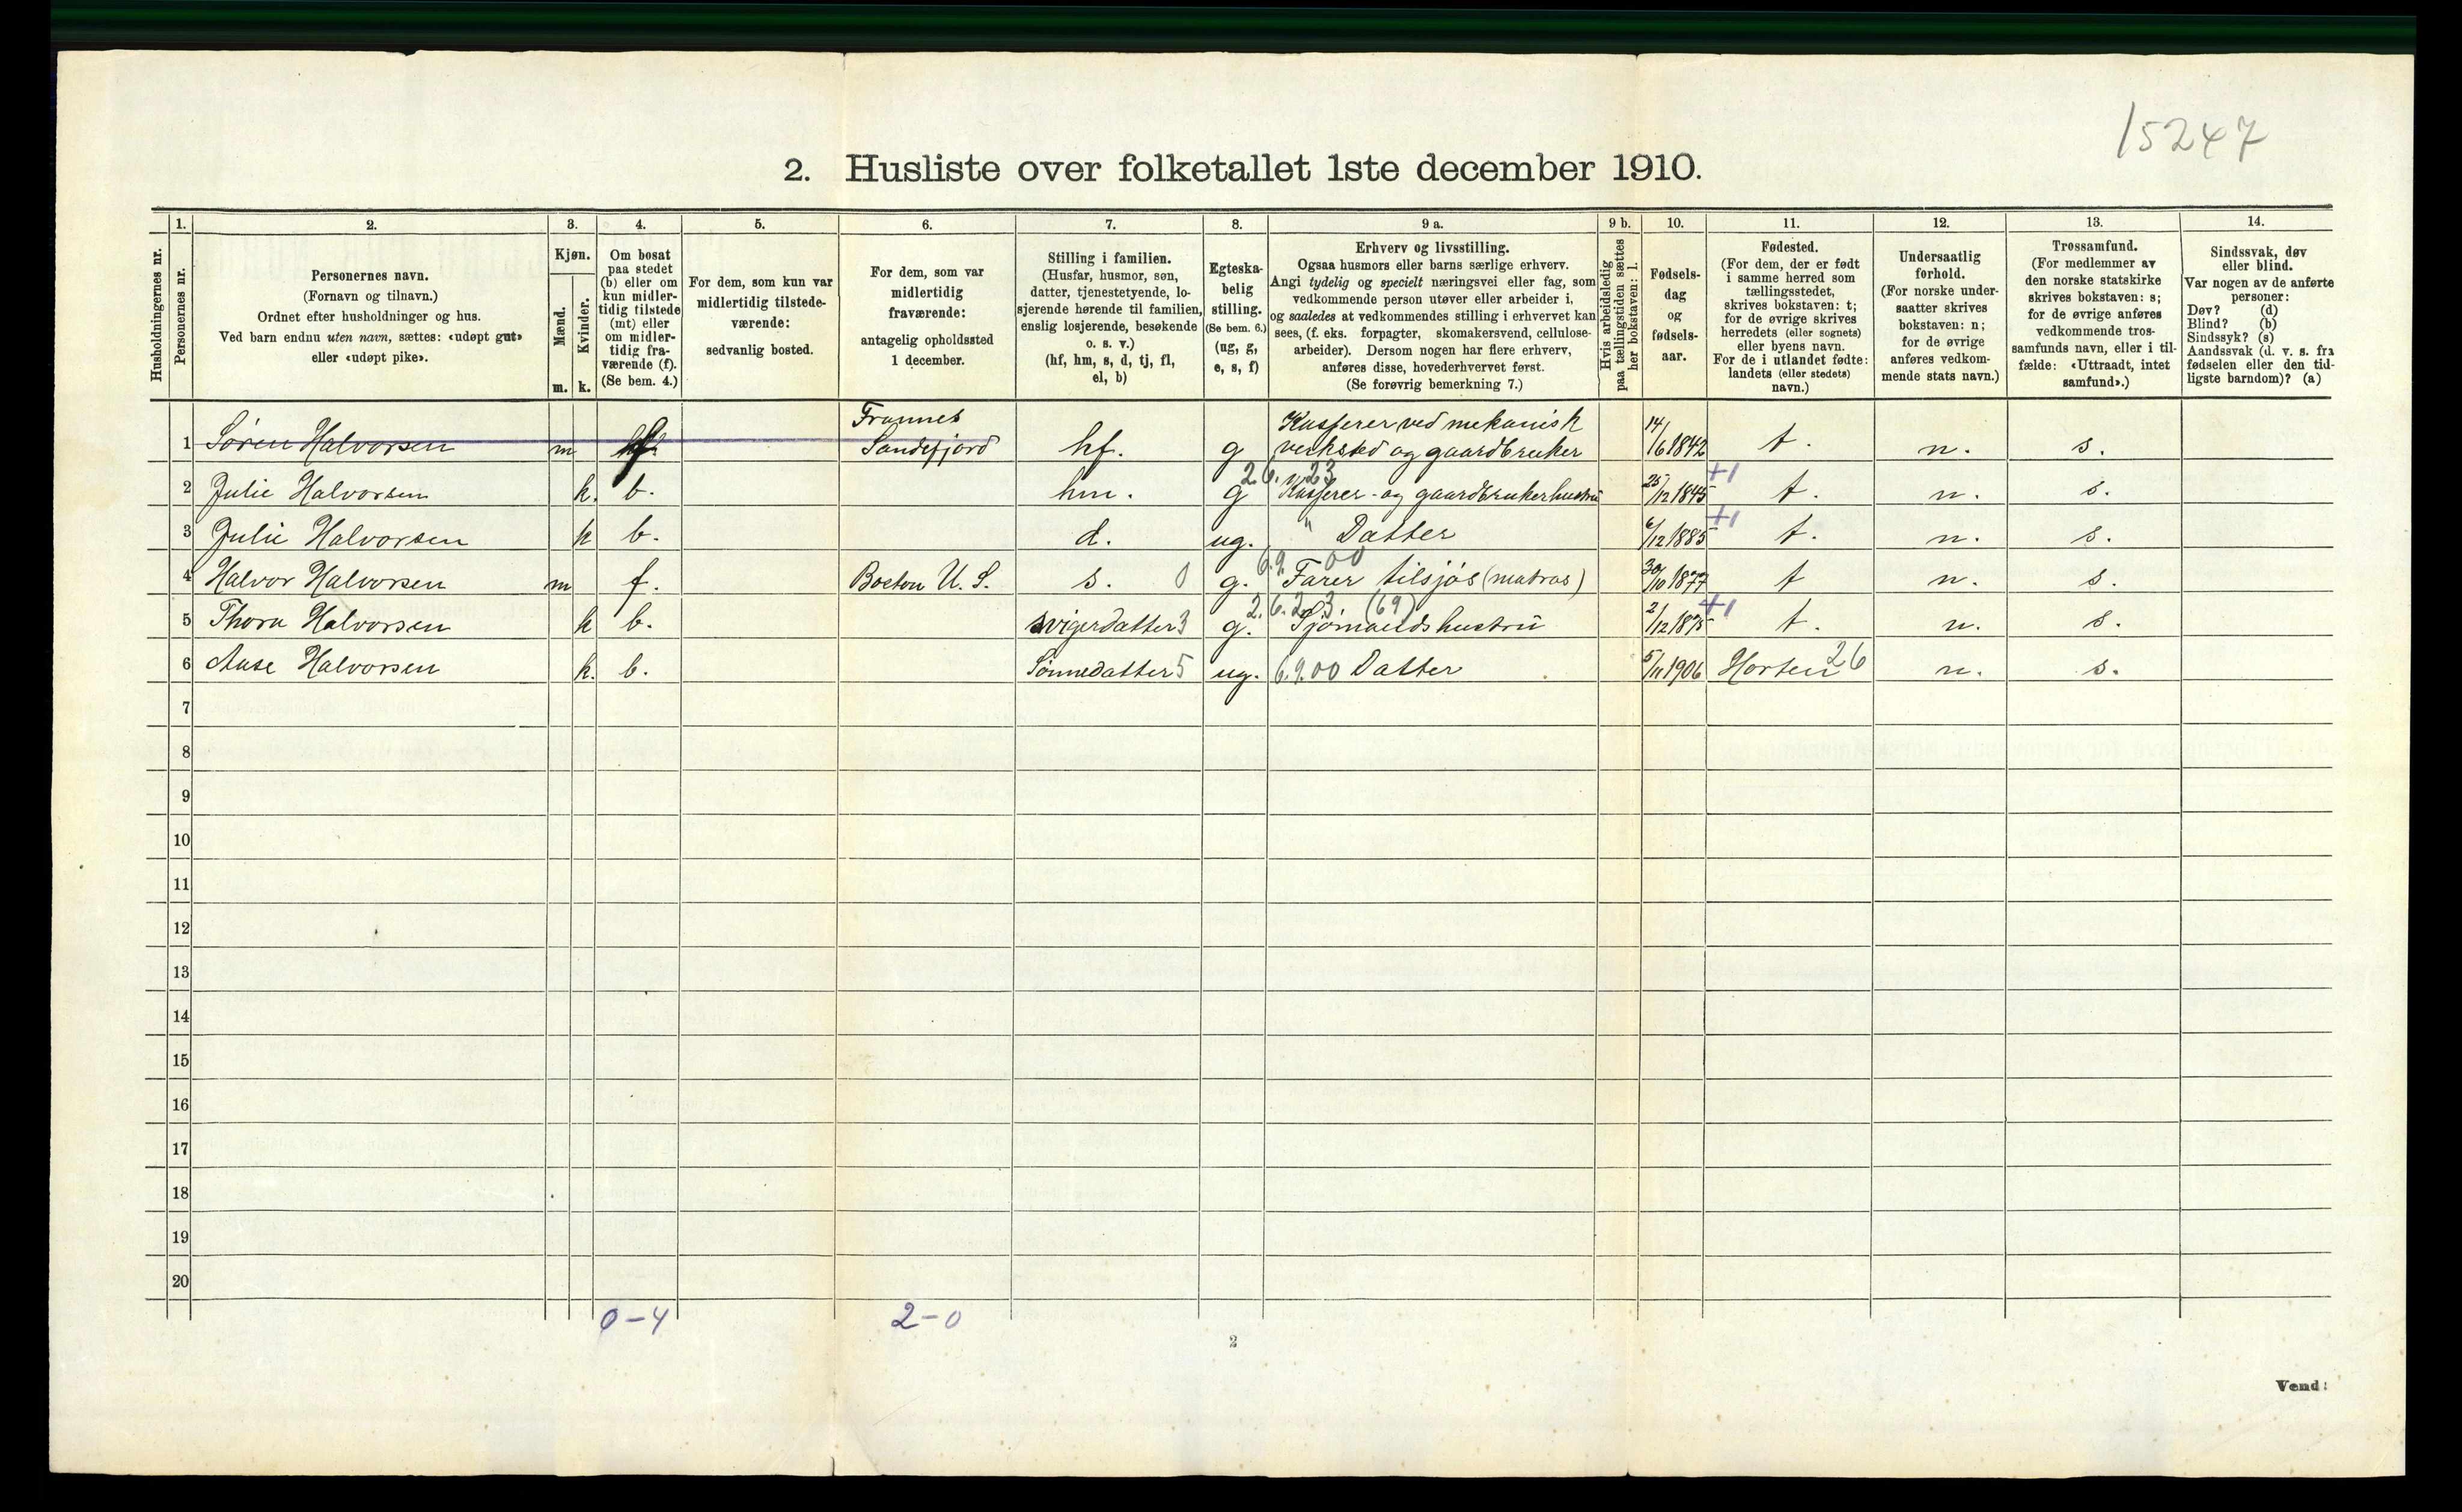 15247
2. Husliste over folketallet 1ste december 1910.
Husholdningernes nr.
1.
Personernes nr.
2.
Personernes navn.
(Fornavn og tilnavn.)
Ordnet efter husholdninger og hus.
Ved barn endnu uten navn, sættes: «udøpt gut»
eller «udøpt pike».
3.
Kjøn.
Mænd.
m.
Kvinder.
k.
4.
Om bosat
paa stedet
(b) eller om
kun midler-
tidig tilstede
(mt) eller
om midler-
tidig fra-
værende (f).
(Se bem. 4.)
5.
For dem, som kun var
midlertidig tilstede-
værende:
sedvanlig bosted.
6.
For dem, som var
midlertidig
fraværende:
antagelig opholdssted
1 december.
7.
Stilling i familien.
(Husfar, husmor, søn,
datter, tjenestetyende, lo-
sjerende hørende til familien,
enslig losjerende, besøkende
o. s. v.)
(hf, hm, s, d, tj, fl,
el, b)
8.
Egteska-
belig
stilling.
(Se bem. 6.)
(ug, g,
e, s, f)
9 a.
Erhverv og livsstilling.
Ogsaa husmors eller barns særlige erhverv.
Angi tydelig og specielt næringsvei eller fag, som
vedkommende person utøver eller arbeider i,
og saaledes at vedkommendes stilling i erhvervet kan
sees, (f. eks. forpagter, skomakersvend, cellulose-
arbeider). Dersom nogen har flere erhverv,
anføres disse, hovederhvervet først.
(Se forøvrig bemerkning 7.)
9 b.
Hvis arbeidsledig
paa tællingstiden sættes
her bokstaven: l.
10.
Fødsels-
dag
og
fødsels-
aar.
11.
Fødested.
(For dem, der er født
i samme herred som
tællingsstedet,
skrives bokstaven: t;
for de øvrige skrives
herredets (eller sognets)
eller byens navn.
For de i utlandet fødte:
landets (eller stedets)
navn.)
12.
Undersaatlig
forhold.
(For norske under-
saatter skrives
bokstaven: n;
for de øvrige
anføres vedkom-
mende stats navn.)
13.
Trossamfund.
(For medlemmer av
den norske statskirke
skrives bokstaven: s;
for de øvrige anføres
vedkommende tros-
samfunds navn, eller i til-
fælde: «Uttraadt, intet
samfund».)
14.
Sindssvak, døv
eller blind.
Var nogen av de anførte
personer:
Døv? (d)
Blind? (b)
Sindssyk? (s)
Aandssvak (d. v. s. fra
fødselen eller den tid-
ligste barndom)? (a)
Framnes Kasserer ved mekanisk
1 Søren Halvorsen m f Sandefjord hf. g verksted og gaardbruker 14/6 1842 t. n. s.
2.6.23 +1
2 Julie Halvorsen k. b. hm. g Kasserer- og gaardbrukerhustru 25/12 1845 t. n. s.
+1
3 Julie Halvorsen k b. d. ug. " Datter 6/12 1885 t. n. s.
6.9.00
4 Halvor Halvorsen m f. Boston U. S. s. 0 g. Farer tilsjøs (matros) 30/10 1877 t n. s.
2.6.23. (69) +1
5 Thora Halvorsen k b. svigerdatter 3 g. Sjømandshustru 2/12 1875 t. n. s.
6 Aase Halvorsen k. b. Sønnedatter 5 ug. 6.9.00 Datter 5/11 1906 Horten 26 n. s.
7
8
9
10
11
12
13
14
15
16
17
18
19
20
0-4 2-0
2
Vend!